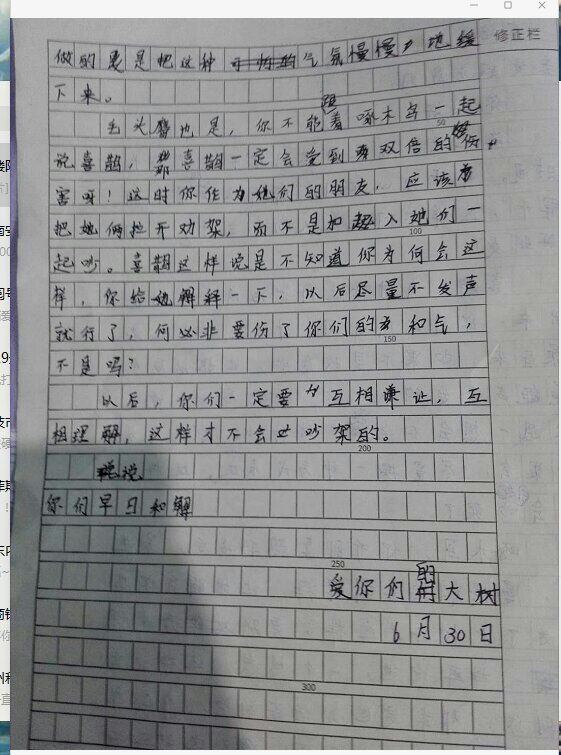 修正栏
做的更是把这种气氛慢慢地缓
下来。
毛头鹰也是，你不能跟着啄木鸟一起
说喜鹊，那喜鹊一定会受到双倍的伤
害呀！这时你作为他们的朋友，应该
把她俩拉开劝架，而不是加入她们一
起吵。喜鹊这样说是不知道你为何会这
样，你给她解释一下，以后尽量不发声
就行了，何必非要伤了你们的和气，
不是吗？
以后，你们一定要互相谦让，互
相理解，这样才不会吵架的。
祝
你们早日和解
爱你们的大树
6月30日
50
100
150
200
250
300